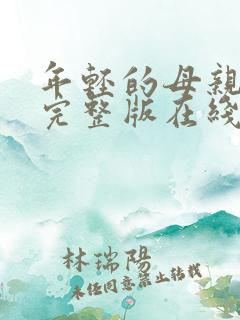 年輕的母親
完整版在綫
林瑞陽
未經同意禁止轉載